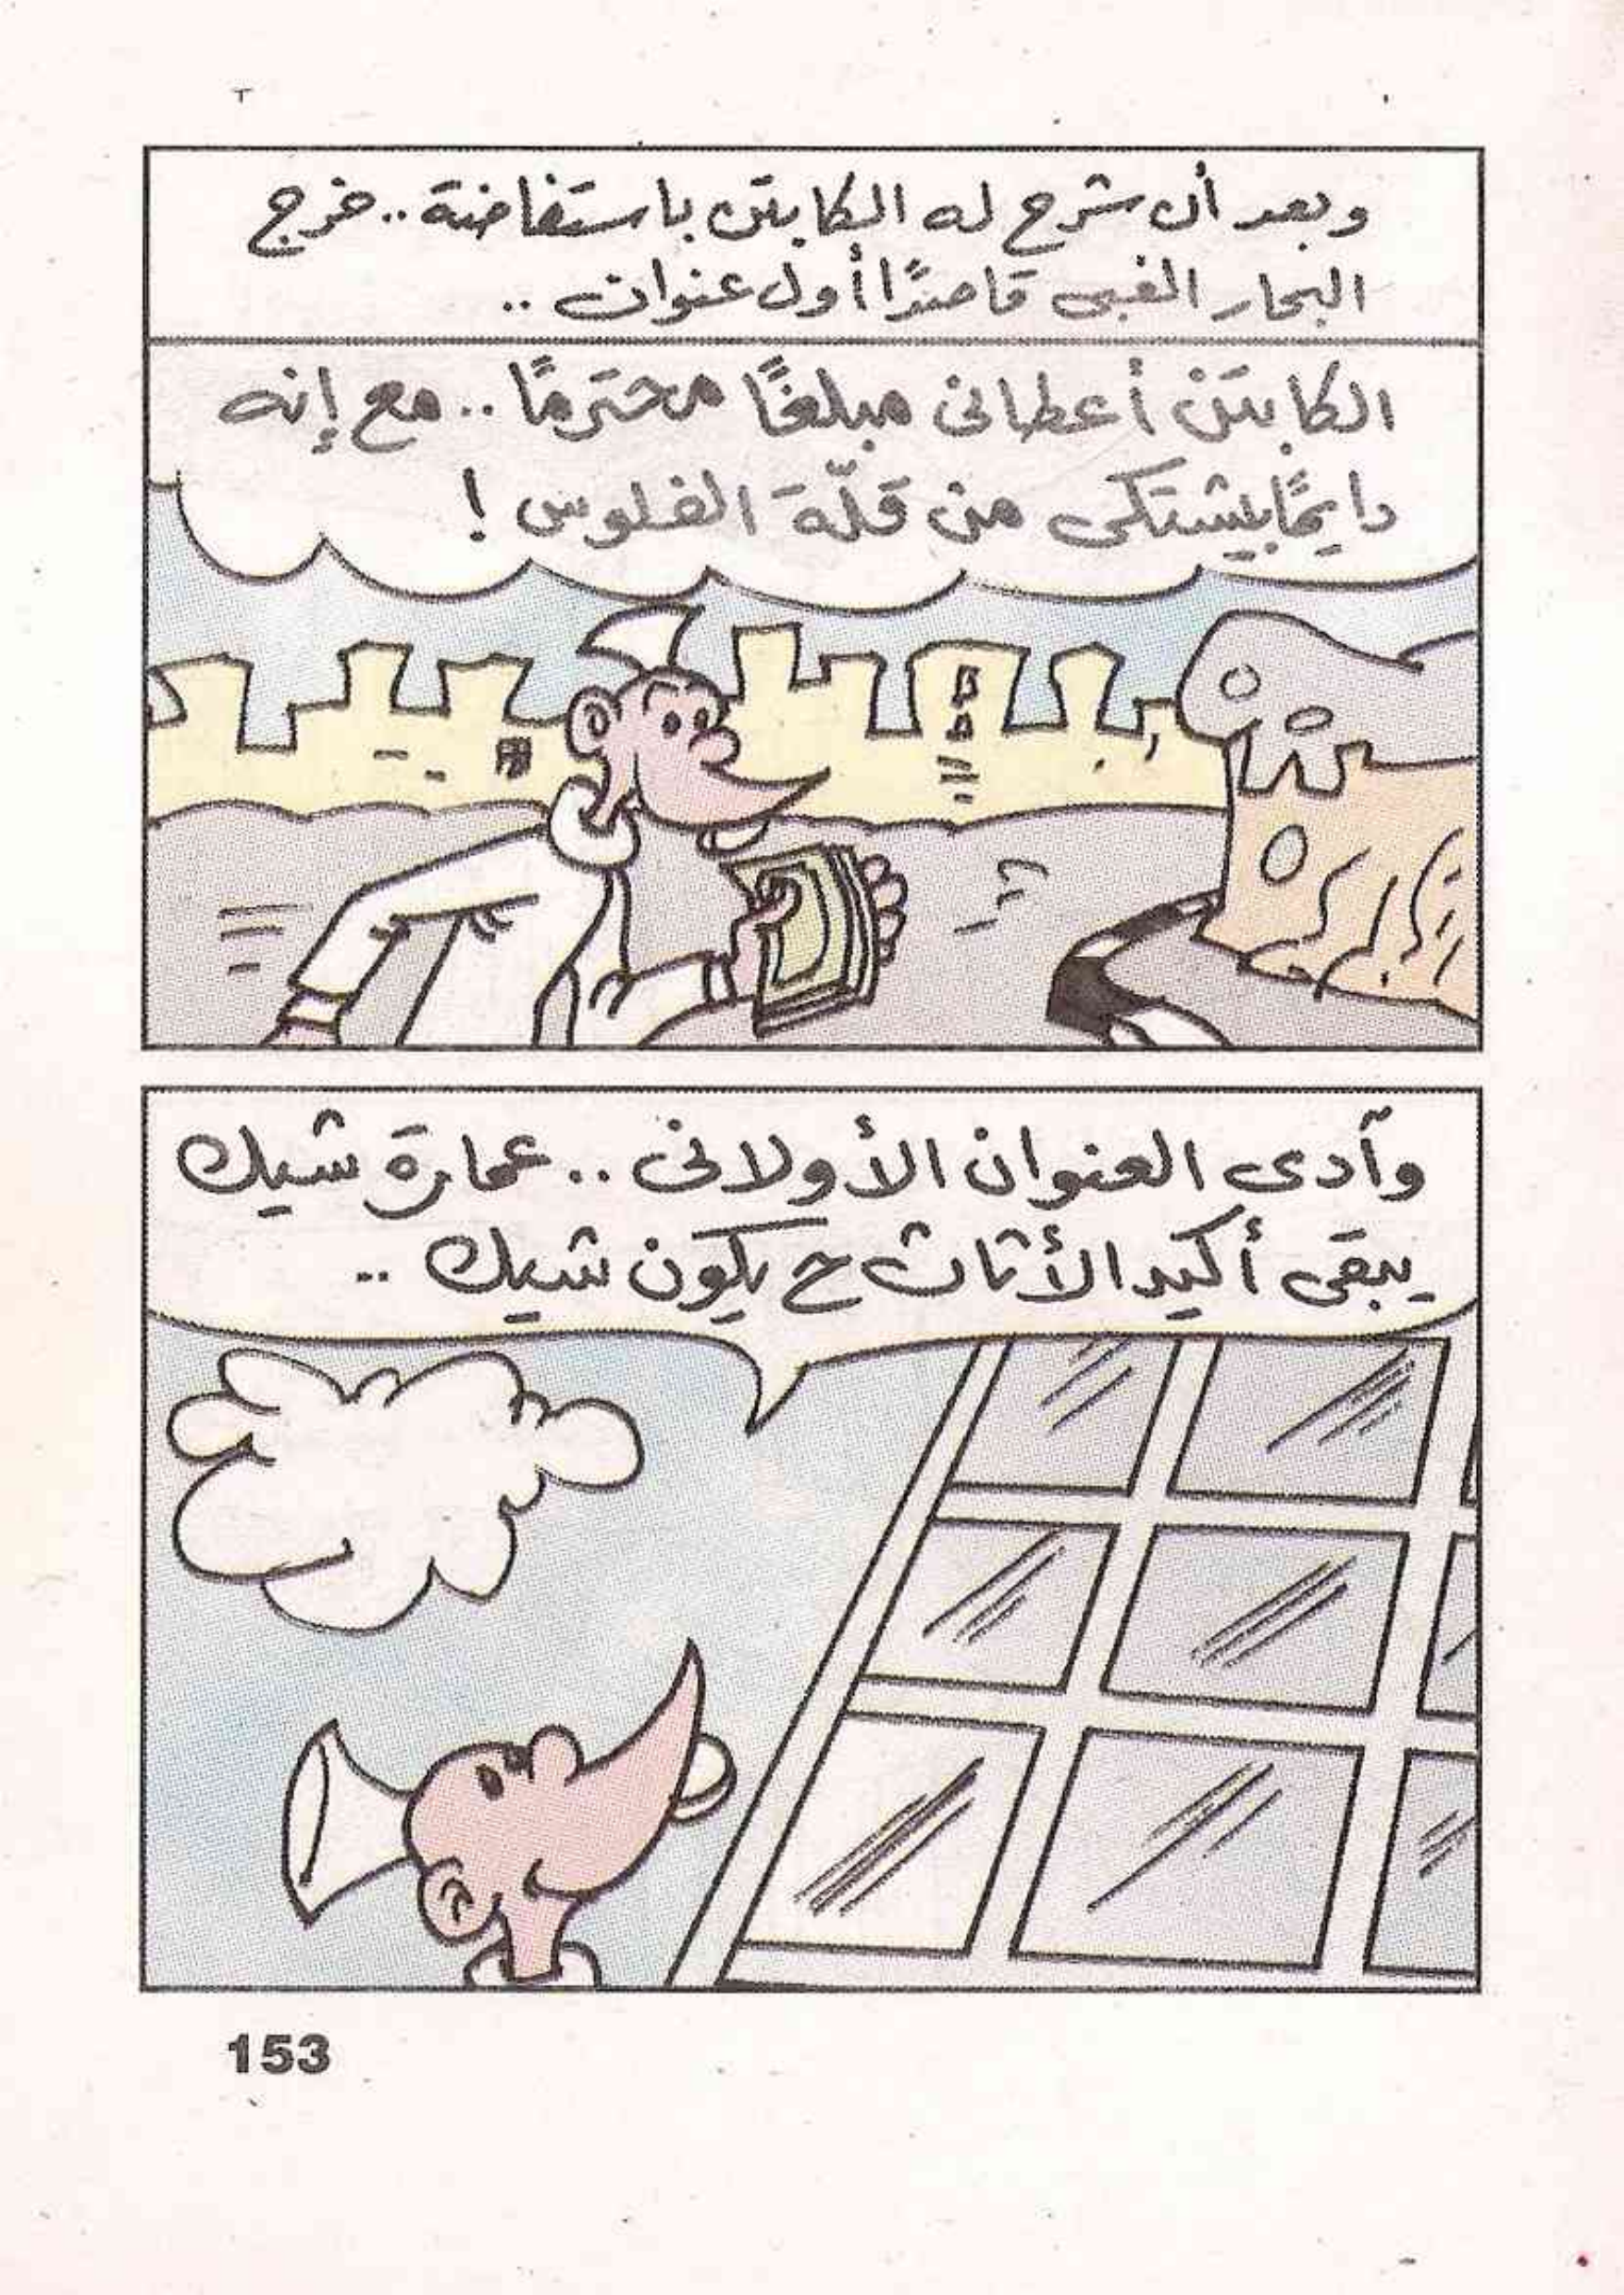 وبعد أن شرح له الكابتن باستفاضة.. خرج
البحار الغبى قاصدًا أول عنوان..
الكابتن أعطانى مبلغًا محترمًا.. مع إنه
دايمًا بيشتكى من قلّة الفلوس!
وآدى العنوان الأولانى.. عمارة شيك
يبقى أكيد الأثاث ح يكون شيك..
153